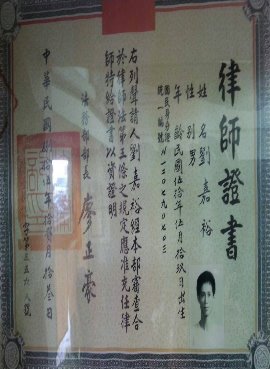 律師證書
姓名劉嘉裕
性別男
年齡民國伍拾年伍月拾玖日出生
國民身分證
統一編號
右列聲請人劉嘉裕經本部審查合
於律師法第三條之規定應准充任律
師特給證書以資證明
法務部部長 廖正豪
中華民國捌拾伍年拾貳月拾叁日